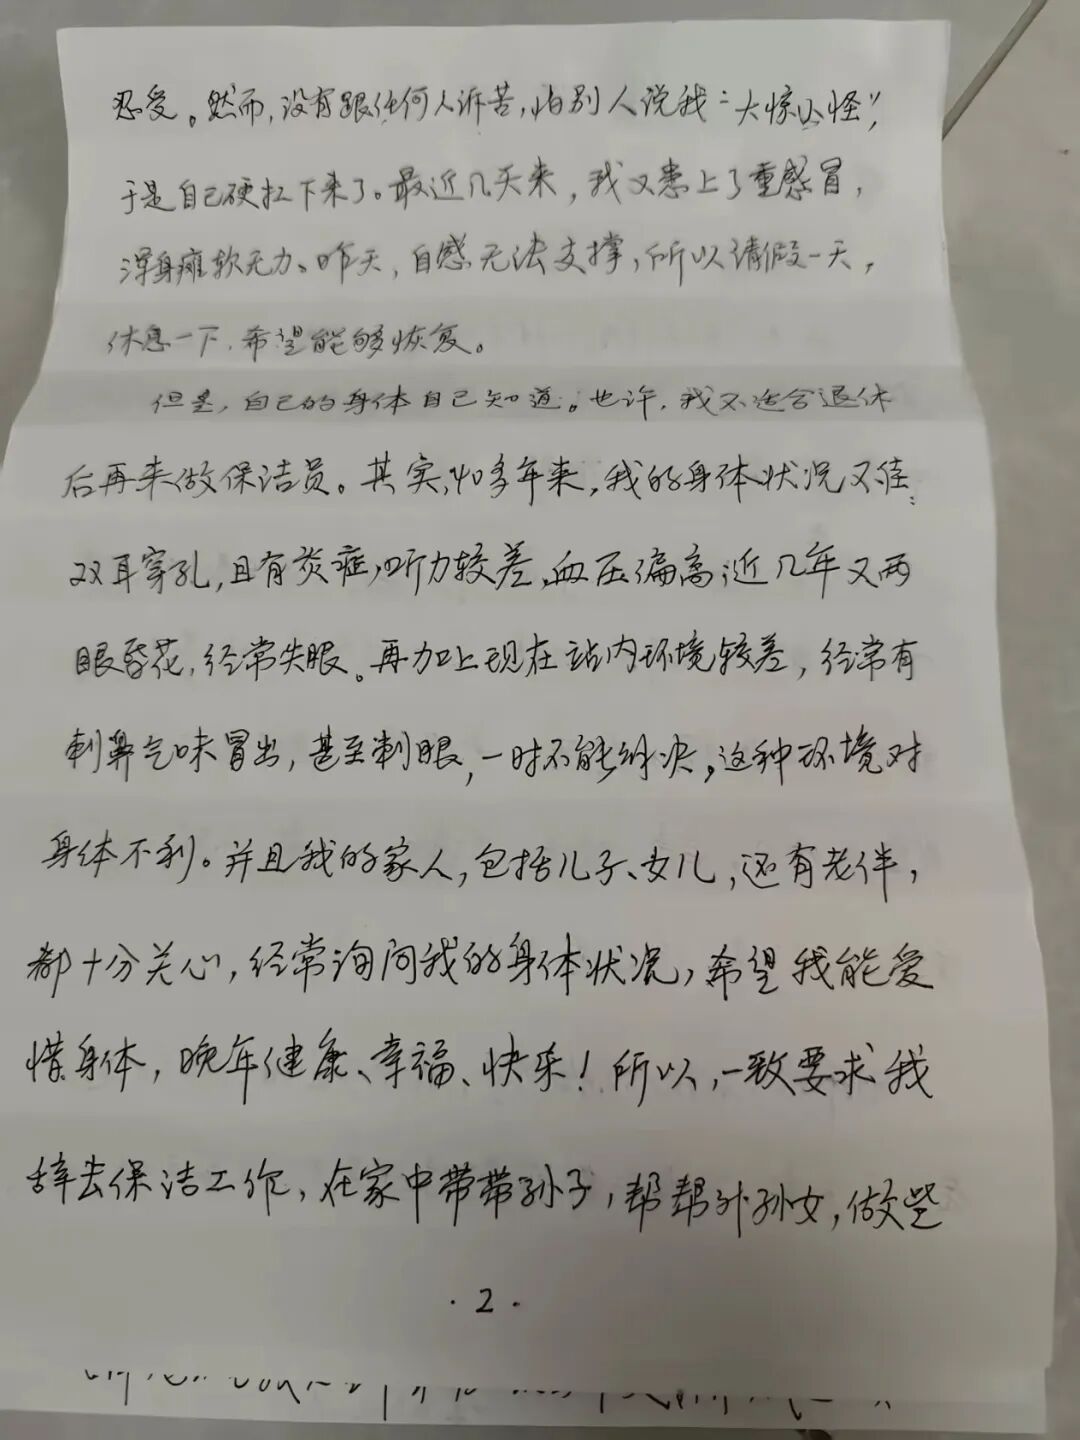 忍受。然而,没有跟任何人诉苦,怕别人说我“大惊小怪”,
于是自己硬扛下来了。最近几天来,我又患上了重感冒,
浑身瘫软无力。昨天,自感无法支撑,所以请假一天,
休息一下,希望能够恢复。
但是,自己的身体自己知道。也许,我不适合退休
后再来做保洁员。其实,40多年来,我的身体状况不佳:
双耳穿孔,且有炎症,听力较差,血压偏高,近几年又两
眼昏花,经常失眠。再加上现在站内环境较差,经常有
刺鼻气味冒出,甚至刺眼,一时不能解决。这种环境对
身体不利。并且我的家人,包括儿子、女儿,还有老伴,
都十分关心,经常询问我的身体状况,希望我能爱
惜身体,晚年健康、幸福、快乐!所以,一致要求我
辞去保洁工作,在家中带带孙子,帮帮外孙女,做些
·2·